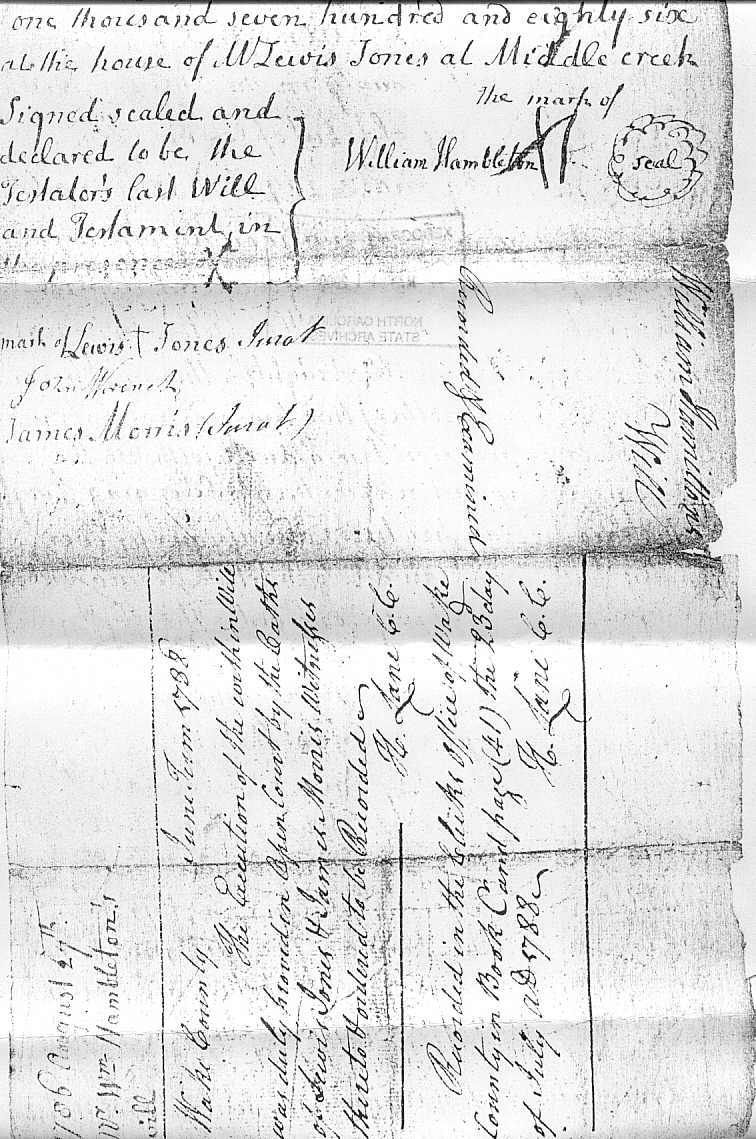 one thousand seven hundred and eighty six
at the house of Mr Lewis Jones at Middle creek
Signed sealed and
declared to be the
Testator's last Will
and Testament in
the presence of
the mark of
William Hambleton
seal
mark of Lewis + Jones Jurat
John
James Morris (Jurat)
William Hamiltons
Will
Recorded
1786 August 29th
Mr. Wm Hambleton's
will
Wake County June Term 1788
The Execution of the within Will
was duly proved in Open Court by the Oaths
of Lewis Jones & James Morris Witnesses
thereto & ordered to be Recorded
H. Lane C. C.
Recorded in the Clerks Office of Wake
County in Book C and page (41) the 23 day
of July AD 1788
H. Lane C. C.
NORTH CAROLINA
STATE ARCHIVES